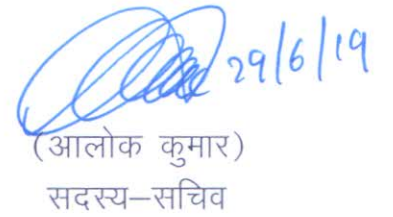 29/6/19
(आलोक कुमार)
सदस्य–सचिव